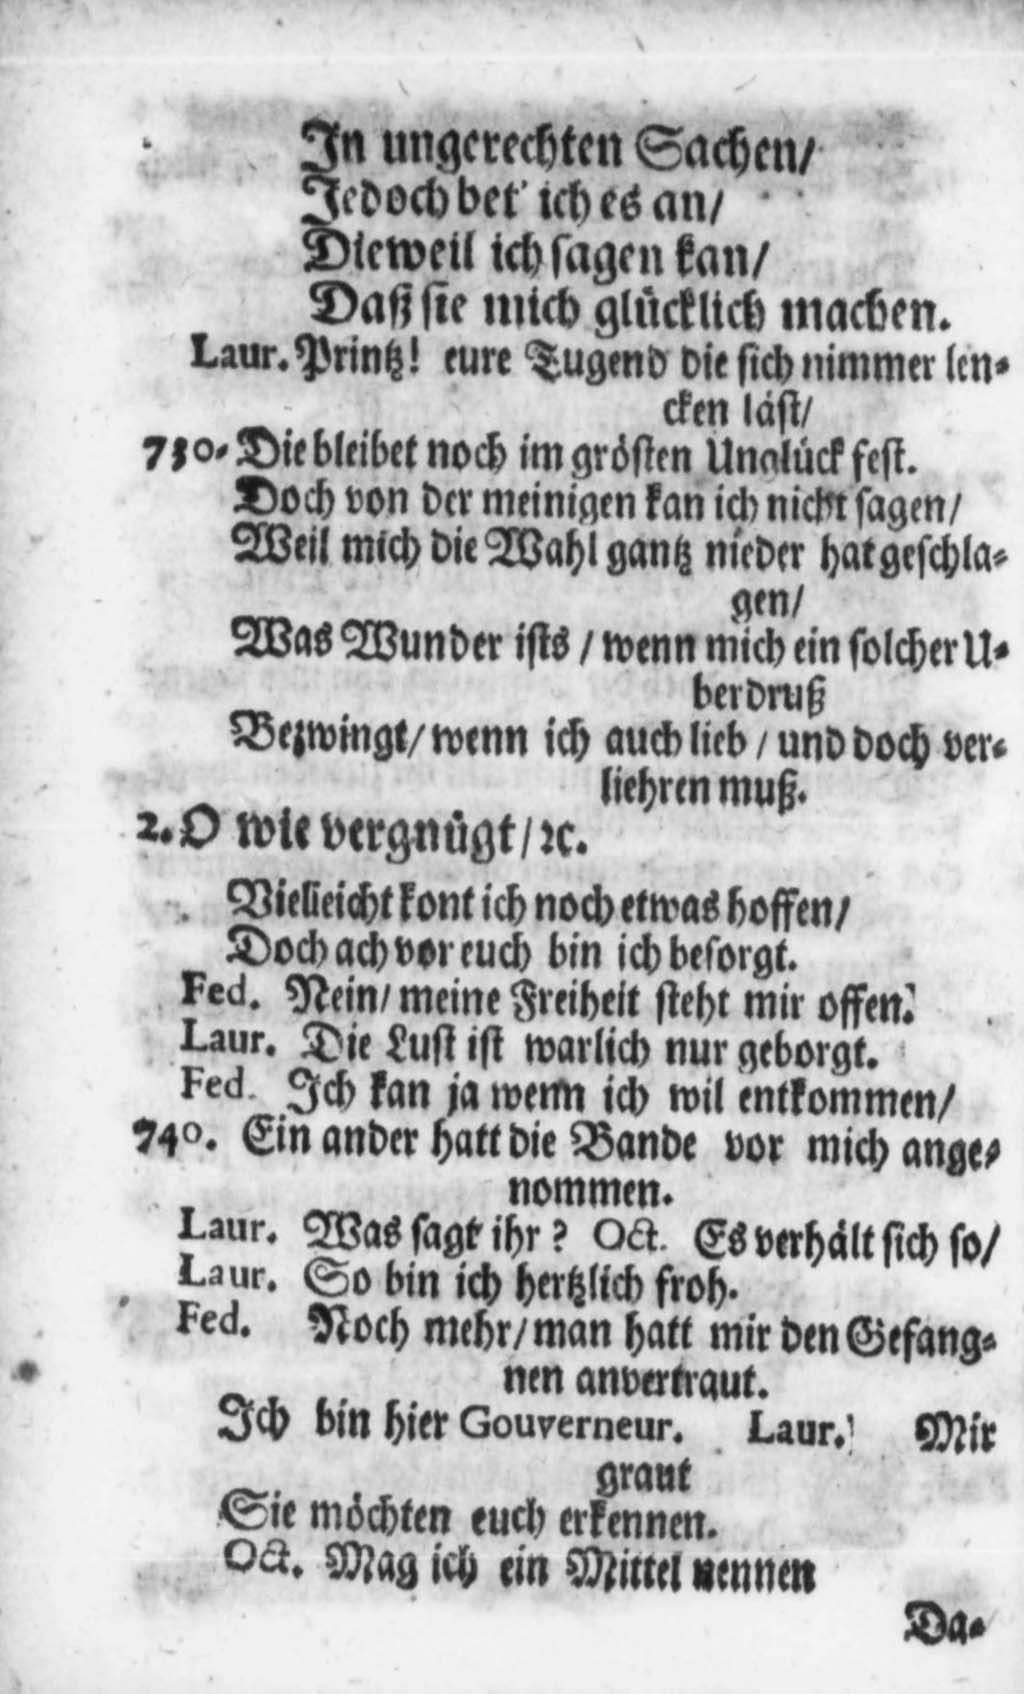 In ungerechten Sachen/
Jedoch bet' ich es an/
Dieweil ich sagen kan/
Daß sie mich glücklich machen.
Laur. Printz! eure Tugend die sich nimmer len-
cken läst/
730. Die bleibet noch im grösten Unglück fest.
Doch von der meinigen kan ich nicht sagen/
Weil mich die Wahl gantz nieder hat geschla-
gen/
Was Wunder ists / wenn mich ein solcher U-
berdruß
Bezwingt/ wenn ich auch lieb / und doch ver-
liehren muß.
2. O wie vergnügt/ ꝛc.
Vielleicht kont ich noch etwas hoffen/
Doch ach vor euch bin ich besorgt.
Fed. Nein/ meine Freiheit steht mir offen.
Laur. Die Lust ist warlich nur geborgt.
Fed. Ich kan ja wenn ich wil entkommen/
740. Ein ander hatt die Bande vor mich ange-
nommen.
Laur. Was sagt ihr? Oct. Es verhält sich so/
Laur. So bin ich hertzlich froh.
Fed. Noch mehr/ man hatt mir den Gefang-
nen anvertraut.
Ich bin hier Gouverneur. Laur. Mir
graut
Sie möchten euch erkennen.
Oct. Mag ich ein Mittel nennen
Da-